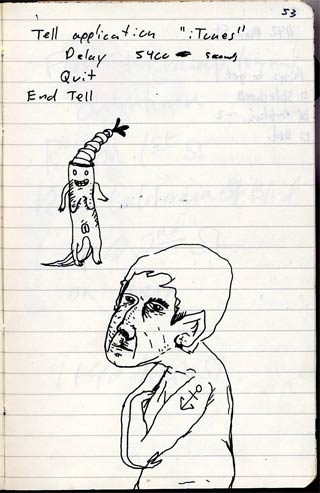 53
Tell application "iTunes"
Delay 5400 seconds
Quit
End Tell